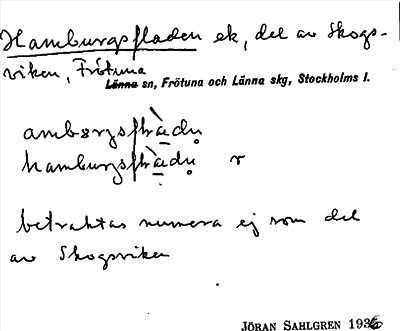 Hamburgsfladen ek, del av Skogs-
viken, Frötuna
Länna sn, Frötuna och Länna skg, Stockholms l.
hamburgsflädn r
betraktas numera ej som del
av Skogsviken
JÖRAN SAHLGREN 1936